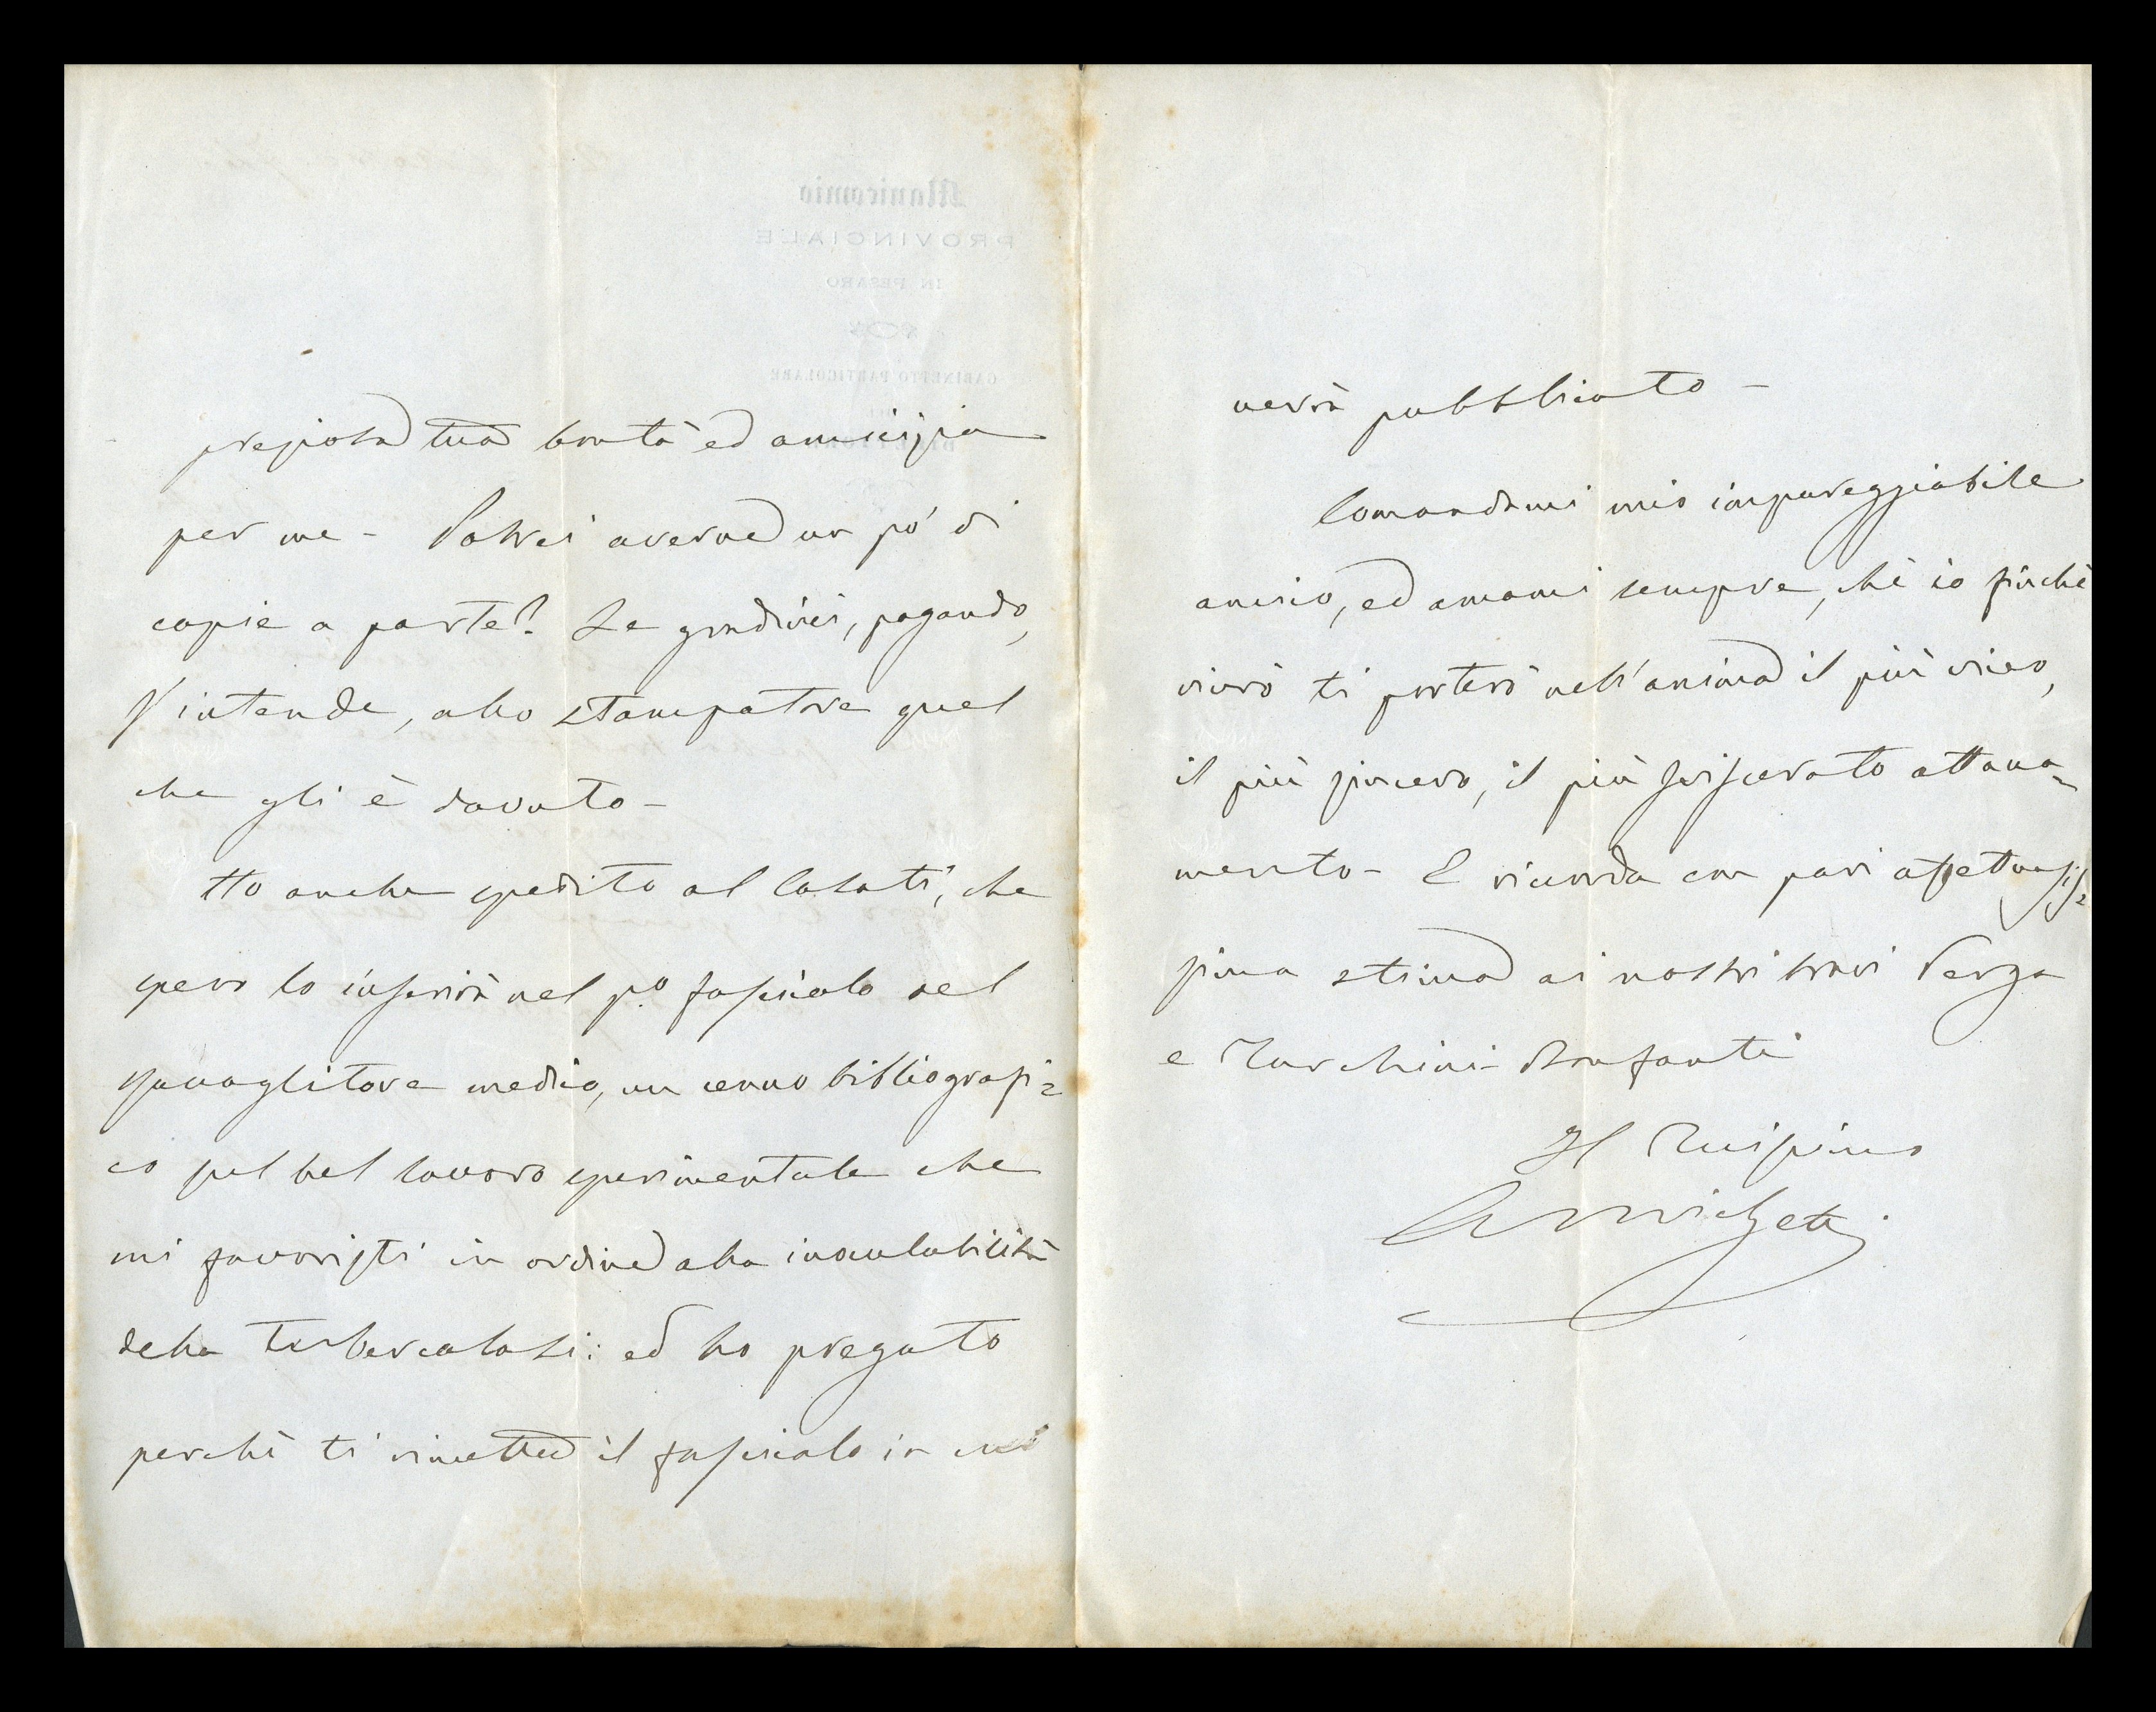 preziosa tua bontà ed amicizia
per me - Potrei averne un pò di
copie a parte? Le gradirei, pagando,
s'intende, allo stampatore quel
che gli è dovuto -
Ho anche spedito al Casati, che
spero lo inserirà nel po. fascicolo del
Spallanzani medico, un cenno bibliografi=
co pel bel lavoro sperimentale che
mi favoristi in ordine alla inoculabilità
della tubercolosi: ed ho pregato
perchè ti rimetta il fascicolo in cui
verrà pubblicato -
Comandami mio impareggiabile
amico, ed amami sempre, chè io finchè
vivrò ti porterò nell'anima il più vivo,
il più sincero, il più sviscerato attacca=
mento - E ricorda con pari affettuosis=
sima stima ai nostri bravi Verga
e Zurchini-Bonfanti
Il Tuissimo
Manicomio
PROVINCIALE
IN PESARO
GABINETTO PARTICOLARE